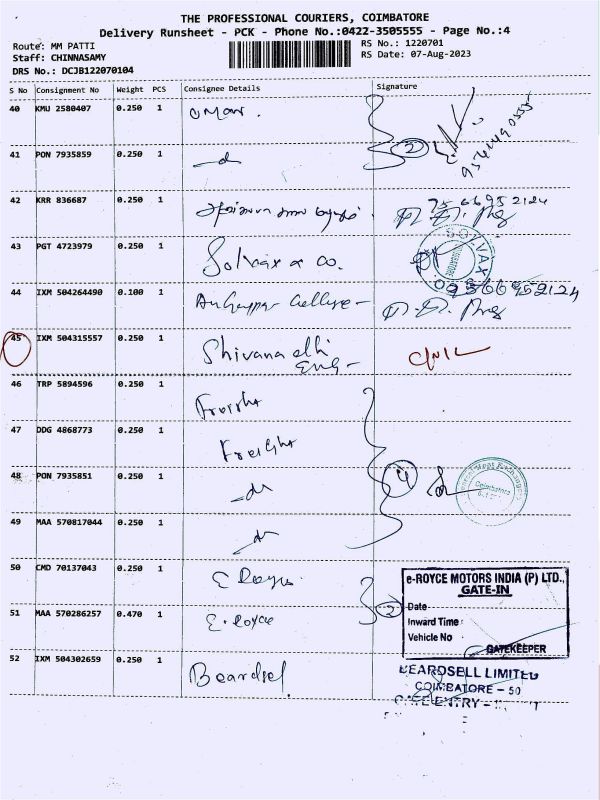 THE PROFESSIONAL COURIERS, COIMBATORE
Delivery Runsheet - PCK - Phone No.:0422-3505555 - Page No.:4
Route: MM PATTI RS No.: 1220701
Staff: CHINNASAMY RS Date: 07-Aug-2023
DRS No.: DCJB122070104
S No Consignment No Weight PCS Consignee Details Signature
40 KMU 2580407 0.250 1
41 PON 7935859 0.250 1
2
42 KRR 836687 0.250 1 9566952124
43 PGT 4723979 0.250 1 Solvax & Co.
SOLVAX
44 IXM 504264490 0.100 1 9566952124
45 IXM 504315557 0.250 1 Shivanadhi
Eng-
46 TRP 5894596 0.250 1 Freight
47 DDG 4868773 0.250 1 Freight
48 PON 7935851 0.250 1 4
Coimbatore
49 MAA 570817044 0.250 1
50 CMD 70137043 0.250 1 E Royce
51 MAA 570286257 0.470 1 E. Royce 2
e-ROYCE MOTORS INDIA (P) LTD.,
GATE-IN
Date
Inward Time
Vehicle No
GATEKEEPER
52 IXM 504302659 0.250 1 Beardsel
BEARDSELL LIMITED
COIMBATORE - 50